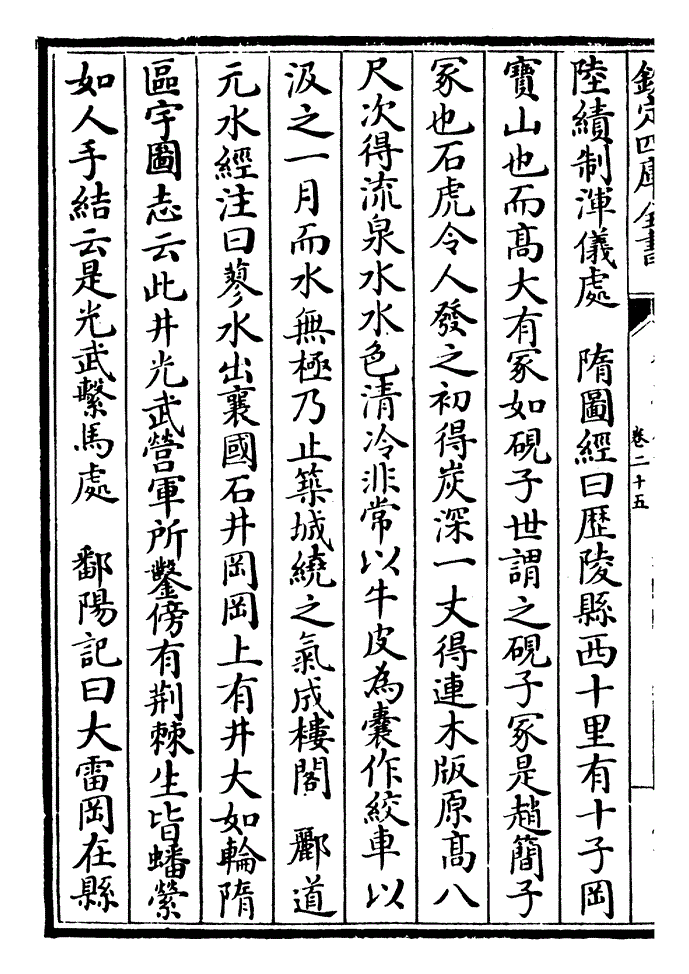 欽定四庫全書
卷二十五
陸績制渾儀處　隋圖經曰歴陵縣西十里有十子岡
寶山也而髙大有冢如硯子世謂之硯子冢是趙簡子
冢也石虎令人發之初得炭深一丈得連木版原髙八
尺次得流泉水水色清冷非常以牛皮為囊作絞車以
汲之一月而水無極乃止築城繞之氣成樓閣　酈道
元水經注曰蓼水出襄國石井岡岡上有井大如輪隋
區宇圖志云此井光武營軍所鑿傍有荆棘生皆蟠縈
如人手結云是光武繫馬處　鄱陽記曰大雷岡在縣